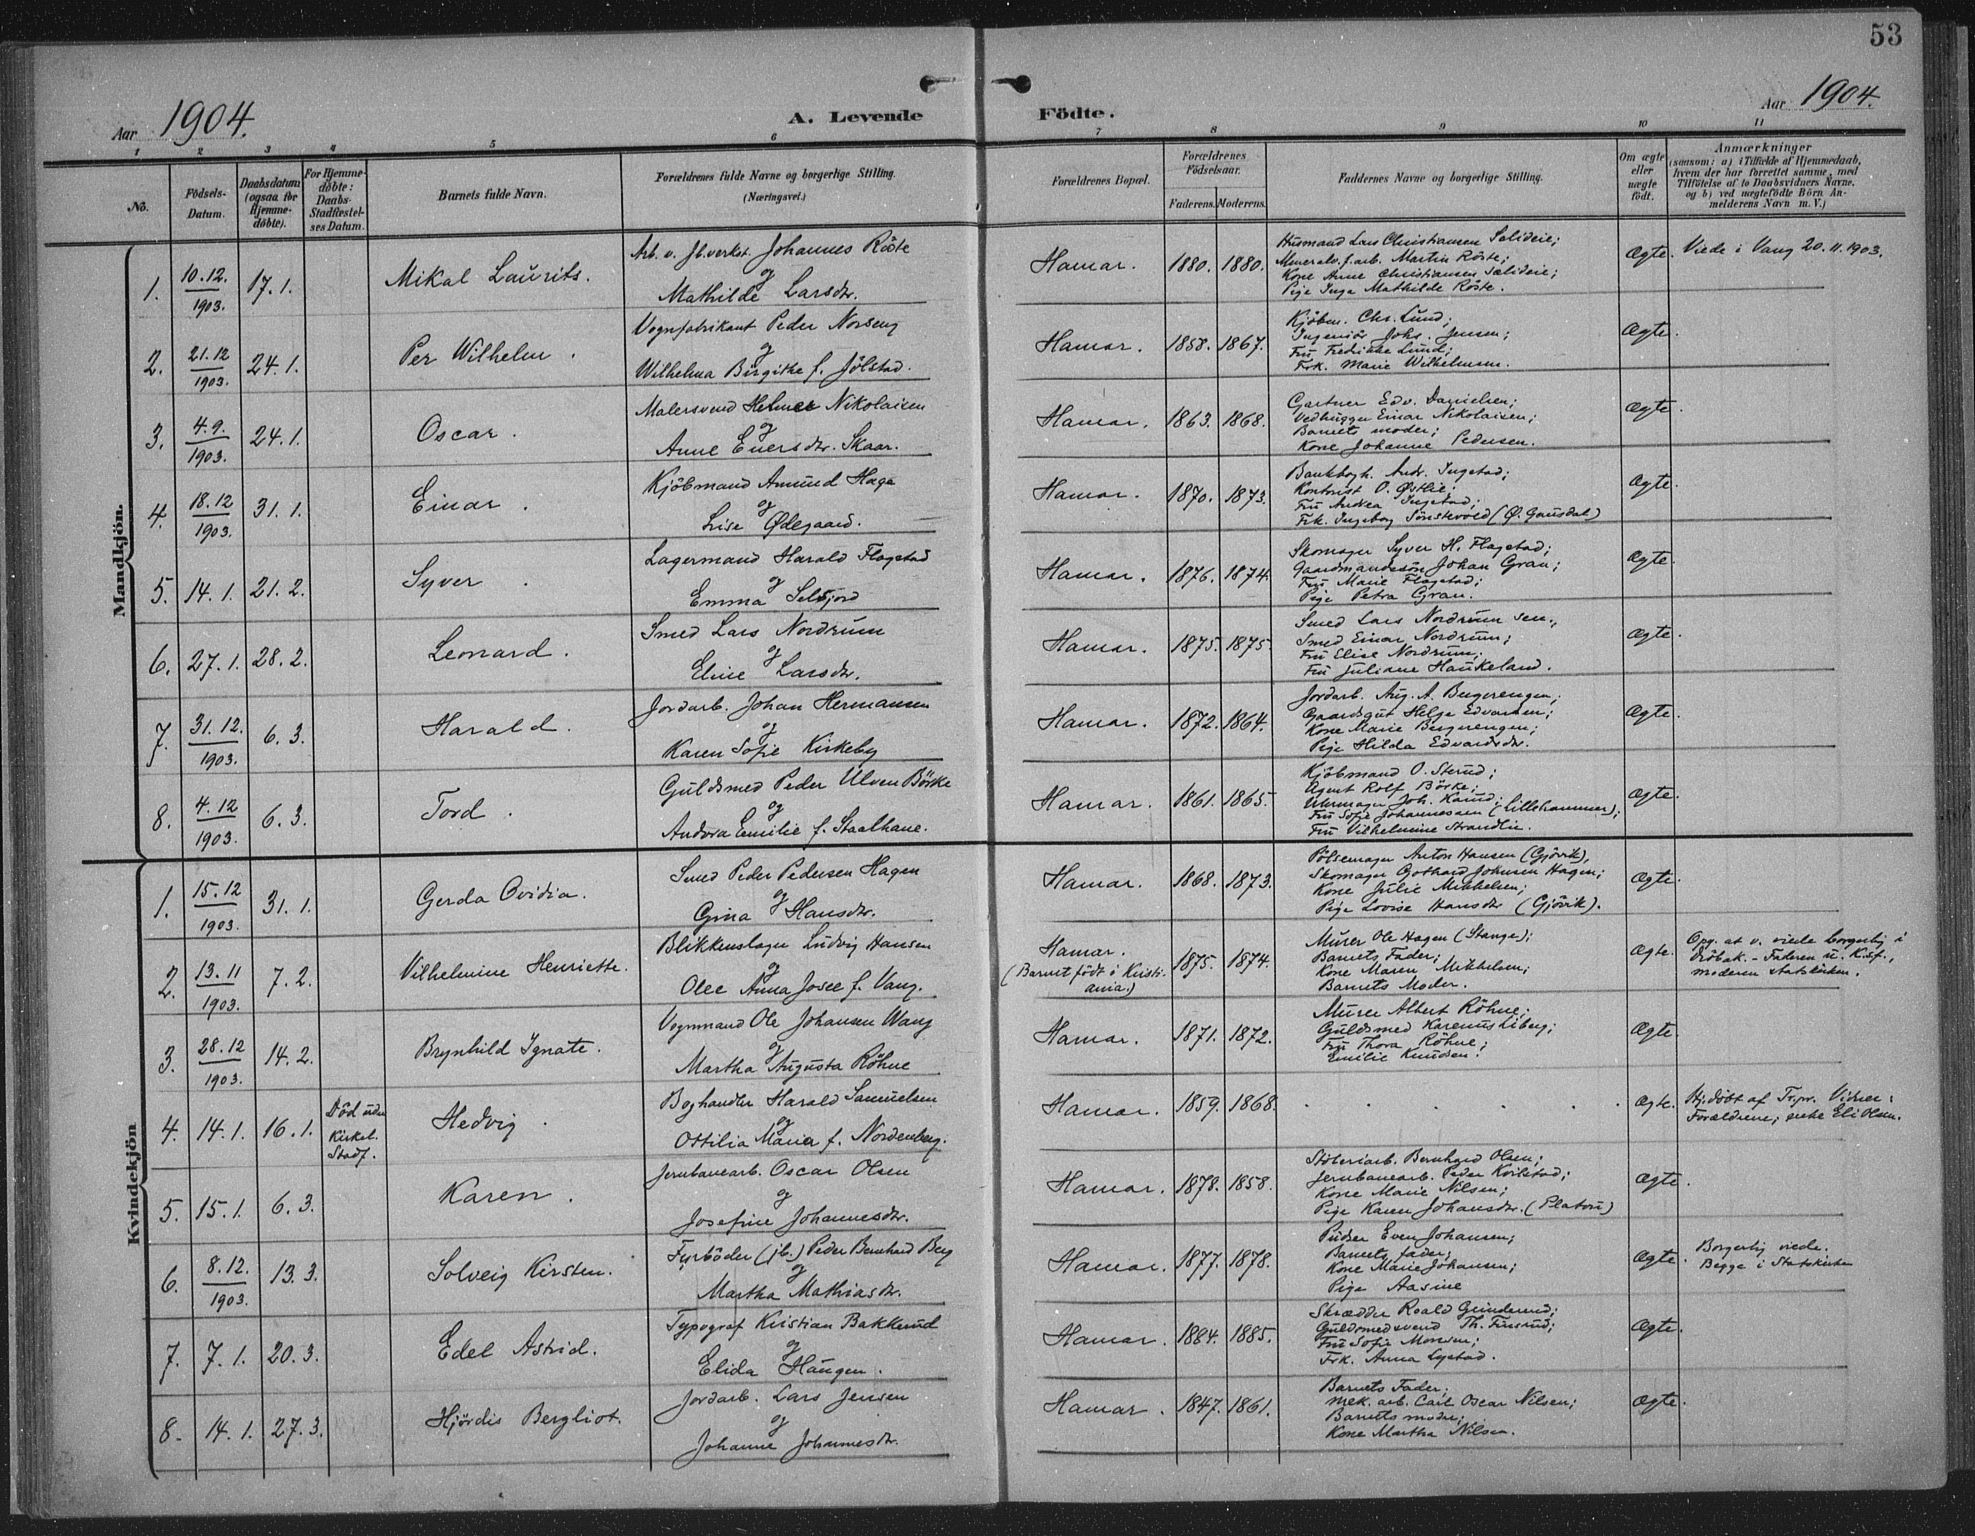 53
Aar 1904.
A. Levende Födte.
Aar 1904.
1 2 3 4 5 6 7 8 9 10 11
No.
Födsels-
Datum.
Daabsdatum
(ogsaa for
Hjemme-
døbte).
For Hjemme-
døbte:
Daabs-
Stadfæstel-
ses Datum.
Barnets fulde Navn.
Forældrenes fulde Navne og borgerlige Stilling.
(Næringsvei.)
Forældrenes Bopæl.
Forældrenes
Födselsaar.
Faderens. Moderens.
Faddernes Navne og borgerlige Stilling.
Om ægte
eller
uægte
født.
Anmærkninger
(saasom: a) i Tilfælde af Hjemmedaab,
hvem der har forrettet samme, med
Tilföielse af to Daabsvidners Navne,
og b) ved uægtefödte Börn An-
melderens Navn m. V.)
Mandkjön.
1. 10.12. 1903. 17.1. Mikal Laurits.
Arb. v. jb.verkst. Johannes Röste
og
Mathilde Larsdtr.
Hamar. 1880. 1880.
Husmand Lars Christiansen Selideie;
Mineralv.f.arb. Martin Röste;
Kone Anne Christiansen Sælideie;
Pige Inga Mathilde Röste.
Ægte. Viede i Vang 20.11.1903.
2. 21.12 1903. 24.1. Per Wilhelm.
Vognfabrikant Peder Norseng
og
Wilhelma Birgitke f. Jölstad.
Hamar. 1858. 1867.
Kjöbm. Chr. Lund;
Ingeniör Johs. Jensen;
Fru Fredrikke Lund;
Frk. Marie Wilhelmsen.
Ægte.
3. 4.9. 1903. 24.1. Oscar.
Malersvend Helmer Nikolaisen
og
Anne Eversdtr. Skaar.
Hamar. 1863. 1868.
Gartner Edv. Danielsen;
Vedhugger Einar Nikolaisen;
Barnets moder;
Kone Johanne Pedersen.
Ægte.
4. 18.12 1903. 31.1. Einar.
Kjöbmand Amund Haga
og
Lise Ødegaard.
Hamar. 1870. 1873.
Bankbogh. Andr. Ingstad;
Kontorist O. Østlie;
Fru Andrea Ingstad;
Frk. Ingeborg Sönstevold (Ø. Gausdal)
Ægte.
5. 14.1. 21.2. Syver.
Lagermand Harald Flagstad
og
Emma Selfjord
Hamar. 1876. 1874.
Skomager Syver H. Flagstad;
Gaardmandssön Johan Gran;
Fru Marie Flagstad;
Pige Petra Gran.
Ægte.
6. 27.1. 28.2. Leonard.
Smed Lars Nordrum
og
Eline Larsdtr.
Hamar. 1875. 1875.
Smed Lars Nordrum sen.,
Smed Einar Nordrum;
Fru Elise Nordrum;
Fru Juliane Haukeland.
Ægte.
7. 31.12. 1903. 6.3. Harald.
Jordarb. Johan Hermansen
og
Karen Sofie Kirkeby
Hamar. 1872. 1864.
Jordarb. Aug. A. Bergerengen;
Gaardsgut Helge Edvardsen;
Kone Marie Bergerengen;
Pige Hilda Edvardsdtr.
Ægte.
8. 4.12 1903. 6.3. Tord.
Guldsmed Peder Ulven Börke
og
Andora Emilie f. Staalhane.
Hamar. 1861. 1865.
Kjöbmand O. Sterud;
Agent Rolf Börke;
Urmager Joh. Kamd;
Fru Sofie Johannessen (Lillehammer);
Fru Vilhelmine Strandlie.
Ægte.
Kvindekjön
1. 15.12 1903. 31.1. Gerda Ovidia.
Smed Peder Pedersen Hagen
og
Gina Hansdtr.
Hamar. 1868. 1873.
Pölsemager Anton Hansen (Gjövik),
Skomager Gothard Johnsen Hagen;
Kone Julie Mikkelsen;
Pige Lovise Hansdtr (Gjövik).
Ægte.
2. 13.11 1903. 7.2. Vilhelmine Henriette.
Blikkenslager Ludvig Hansen
og
Olee Anna Josee f. Vang.
Hamar.
(Barnet født i Kristi-
ania.)
1875. 1874.
Murer Ole Hagen (Stange);
Barnets Fader;
Kone Maren Mikkelsen;
Barnets Moder.
Ægte.
Opg. at v. viede borgerlig i
Dröbak. - Faderen u. K.sf.,
moderen statskirken.
3. 28.12 1903. 14.2. Brynhild Ignate.
Vognmand Ole Johansen Wang
og
Martha Augusta Röhne
Hamar. 1871. 1872.
Murer Albert Röhne;
Guldsmed Karenus Liberg;
Fru Thora Röhne;
Emilie Knudsen.
Ægte.
4. 14.1. 16.1. Död uden
Kirkel.
Stadf.
Hedvig.
Boghandler Harald Samuelsen
og
Ottilia Maria f. Nordenberg.
Hamar. 1859. 1868.
Ægte.
Hj.döbt af Fr.pr. Vidner:
Forældrene,
Eli Olsen.
5. 15.1. 6.3. Karen.
Jernbanearb. Oscar Olsen
og
Josefine Johannesdtr.
Hamar. 1878. 1858.
Stöberiarb. Bernhard Olsen;
Jernbanearb. Peder Kvilstad;
Kone Marie Nilsen;
Pige Karen Johansdtr. (Platou)
Ægte.
6. 8.12. 1903. 13.3. Solveig Kirsten.
Fyrböder (jb.) Peder Bernhard Berg
og
Martha Mathiasdtr.
Hamar. 1877. 1878.
Pudser Even Johansen;
Barnets fader;
Kone Marie Johansen;
Pige Aasine
Ægte.
Borgerlig viede.
Begge i Statskirken
7. 7.1. 20.3. Edel Astrid.
Typograf Kristian Bakkerud
og
Elida Haugen.
Hamar. 1884. 1885.
Skrædder Roald Grinderud;
Guldsmedsvend Th. Fusrud;
Fru Sofie Monsen;
Frk. Anna Lystad.
Ægte.
8. 14.1. 27.3. Hjördis Bergliot.
Jordarb. Lars Jensen
og
Johanne Johannesdtr.
Hamar. 1847. 1861.
Barnets Fader;
Mek. arb. Carl Oscar Nilsen;
Barnets moder;
Kone Martha Nilsen.
Ægte.